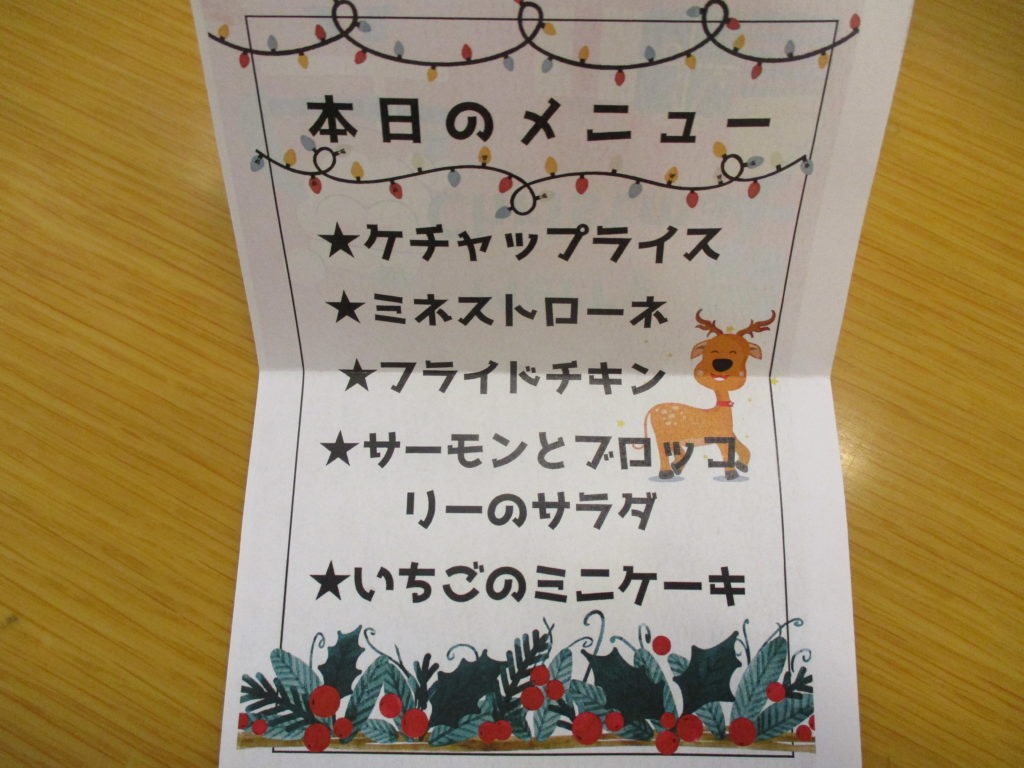 本日のメニュー
★ケチャップライス
★ミネストローネ
★フライドチキン
★サーモンとブロッコ
リーのサラダ
★いちごのミニケーキ